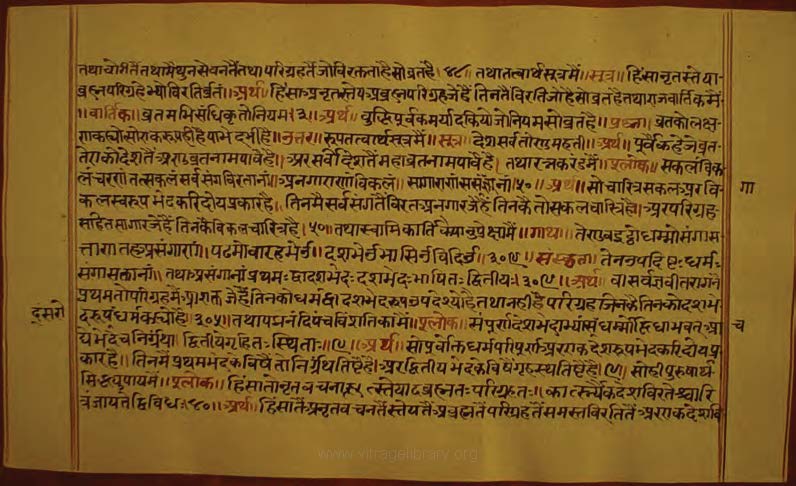 तथा चोरीतैं तथा मैथुनसेवनतैं तथा परिग्रहतैं जो विरक्तता है सो व्रत है।४८। तथा तत्वार्थसूत्रमैं।।सूत्र।।हिंसानृतस्तेया
ब्रह्मपरिग्रहेभ्यो विरतिर्व्रतं।।अर्थ।।हिंसा अनृत स्तेय अब्रह्म परिग्रह जे हैं तिनतैं विरति जो है सो व्रत है तथा राजवार्तिकमैं
।।वार्तिक।।व्रतमभिसंधिकृतो नियमः।३।अर्थ।बुद्धिपूर्वक मर्यादा कियो जो नियम सो व्रत है।।प्रश्न।।व्रतको लक्ष
ण कह्यो सो एकरूपही है या भेदभी है।।उत्तर।।रूप तत्वार्थसूत्रमैं।।सूत्र।।देशसर्वतोणुमहती।।अर्थ।।पूर्वै कहे जे व्रत
ते एकोदेशतैं अणुव्रत नाम पावै है।अर सर्वोदेशतैं महाव्रत नाम पावै है। तथा रत्नकरंडमैं।।श्लोक।।सकलं विक
लं चरणं तत्सकलं सर्वसंगविरतानां।।अनगाराणां विकलं।।सागाराणां ससंगानां।५०।।अर्थ।।सो चारित्र सकल अर वि
कल स्वरूप भेदकरि दोय प्रकार है। तिनमैं सर्वसंगतैं विरत अनगार जे हैं तिनकै तो सकलचारित्र है।अर परिग्रह
सहित सागार जे हैं तिनकै विकलचारित्र है।५०।तथा स्वामिकार्तिकेयानुप्रेक्षामैं।।गाथा।।तेणुवइट्ठो धम्मो संगास
त्ताण तह असंगाणं। पढमो बारहभेओ।।दशभेओ भासिओ विदिओ।।३०९।।संस्कृत।।तेनोपदिष्टः धर्मः
संगासक्तानां।।तथा असंगानां प्रथमः द्वादशभेदः दशभेदः भाषितः द्वितीयः।३०९।।अर्थ।।वा सर्वज्ञ वीतरागनैं
प्रथम तो परिग्रहमैं आशक्त जे हैं तिनको धर्म द्वादशभेदरूप उपदेश्यो है तथा नहीं है परिग्रह जिनकै तिनको दशभे
दरूप धर्म कह्यो है।३०५।तथा पद्मनंदिपंचविंशतिकामैं।।श्लोक।।संपूर्णदेशभेदाभ्यां स च धर्मो द्विधा भवेत् आ
द्ये भेदे च निर्ग्रंथाः द्वितीये गृहिणः स्थिताः।।९।।अर्थ।।सो पूर्वोक्त धर्म परिपूर्ण अर एकदेशरूप भेदकरि दोय प्र
कार है।।तिनमैं प्रथमभेदकेविषैं तो निर्ग्रंथ तिष्ठै है।अर द्वितीय भेदकेविषैं गृहस्थ तिष्ठै है।९।सो ही पुरुषार्थ
सिद्ध्युपायमैं।।श्लोक।।हिंसातोनृतवचनात् स्तेयादब्रह्मतः परिग्रहतः।कार्त्स्न्यैकदेशविरतेश्चारि
त्रं जायते द्विविधं।४०।।अर्थ।।हिंसातैं अनृतवचनतैं स्तेयतैं अब्रह्मतैं परिग्रहतैं समस्तविरतितैं अर एकदेशवि
गा
दूसरो
च
www.vitragelibrary.org